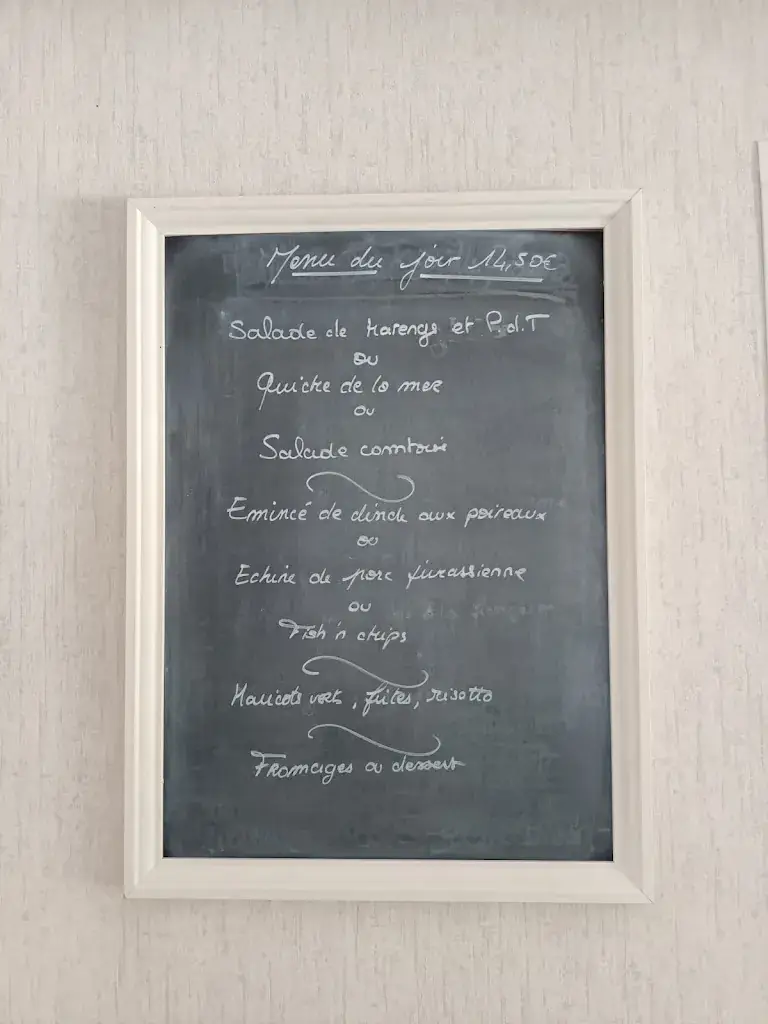 Menu du jour 14,50€
Salade de harengs et P.d.T
ou
Quiche de la mer
ou
Salade comtoise
Emincé de dinde aux poireaux
ou
Echine de porc jurassienne
ou
Fish'n chips
Haricots verts, frites, risotto
Fromages ou dessert